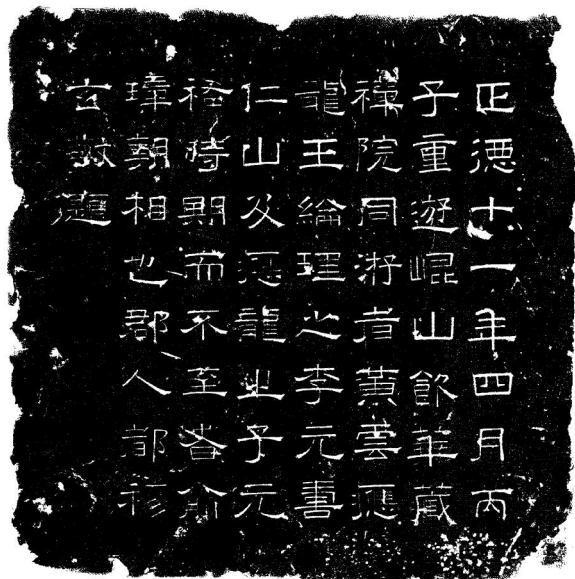 正德十一年四月丙
子重遊崐山飲華藏
禪院同游者黃雲應
龍王綸理之李元壽
仁山及應龍之子元
時期而不至者俞
璋朝相也郡人都穆
玄敬題